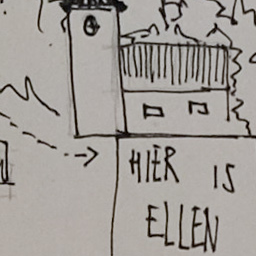 HIER IS
ELLEN